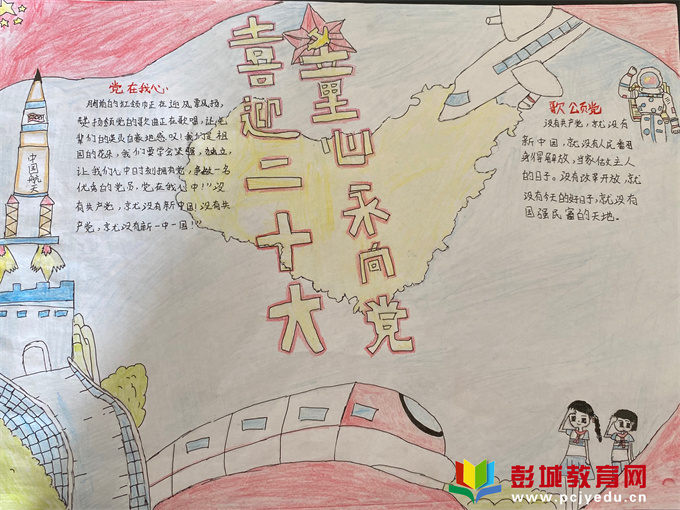 喜迎二十大
童心永向党
党在我心
鲜艳的红领巾正在迎风飘扬,
赞扬领党的歌曲正在歌唱,让先
辈们的英灵自豪地感叹!我们是祖
国的花朵,我们要学会坚强,独立,
让我们心中时刻拥有党,争做一名
优秀的党员,党在我心中!“没
有共产党,就无新中国!没有共
产党,就无没有新一中一国!”
歌颂党
没有共产党,就没有
新中国,就无人民
翻身得解放,当家做主人
的日子。没有改革开放,就
没有今天的好日子,就没有
国强民富的天地。
中国航天
彭城教育网
www.pcjyedu.cn